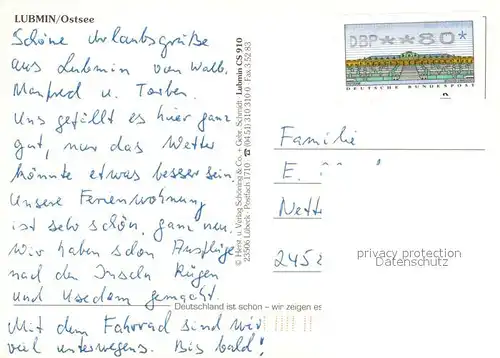 LUBMIN/Ostsee
Schöne Urlaubsgrüße
aus Lubmin von Walb.
Manfred u. Torben.
Uns gefällt es hier ganz
gut, nur das Wetter
könnte etwas besser sein.
Unsere Ferienwohnung
ist sehr schön, ganz neu.
Wir haben schon Ausflüge
nach den Inseln Rügen
und Usedom gemacht.
Mit dem Fahrrad sind wir
viel unterwegs. Bis bald!
© Herst. u. Verlag Schöning & Co. + Gebr. Schmidt
23506 Lübeck · Postfach 1710 ☎ (04 51) 310 310-0 · Fax 3 52 83
Lubmin CS 910
Deutschland ist schön – wir zeigen es
DBP**80*
DEUTSCHE BUNDESPOST
Familie
E.
Nette
2452
privacy protection
Datenschutz